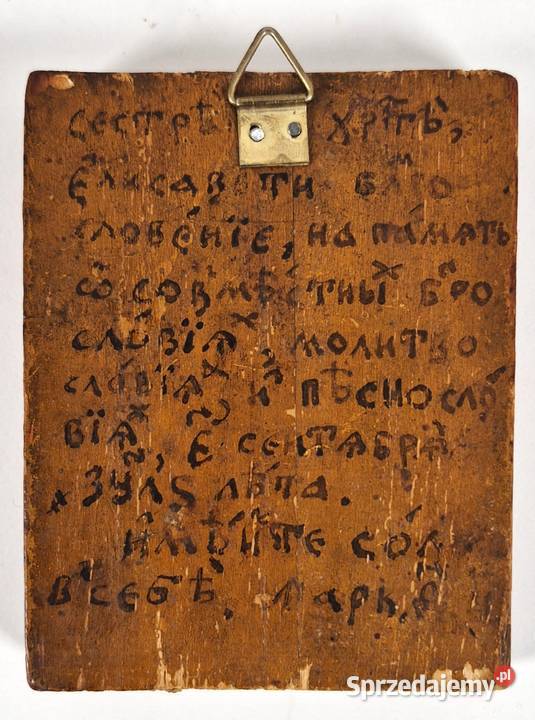 сестрѣ хрⷭ҇тѣ,
є҆лисавети бл҃го
словє́нїє, на па́мѧть
ѿ совмѣ́стныⷯ бг҃о
сло́вїѧⷯ, молитво
сло́вїѧⷯ и҆ пѣснослѡ́
вїѧⷯ, є҃ сентѧбрѧ̀
҂зул҃ѕ лѣ́та.
и҆мѣ́йте со́л
в̾ себѣ̀, Марк,
Sprzedajemy.pl